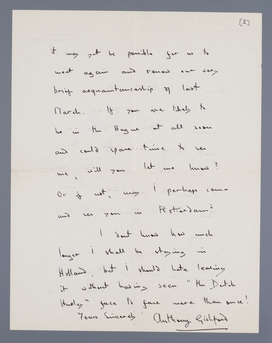 [2]
it may yet be possible for us to
meet again and renew our very
brief acquaintanceship of last
March. If you are likely to
be in the Hague at all soon
and could spare time to see
me, will you let me know?
Or if not, may I perhaps come
and see you in Rotterdam?
I don't know how much
longer I shall be staying in
Holland, but I should hate leaving
it without having seen "the Dutch
Huxley" face to face more than once!
Yours sincerely Anthony